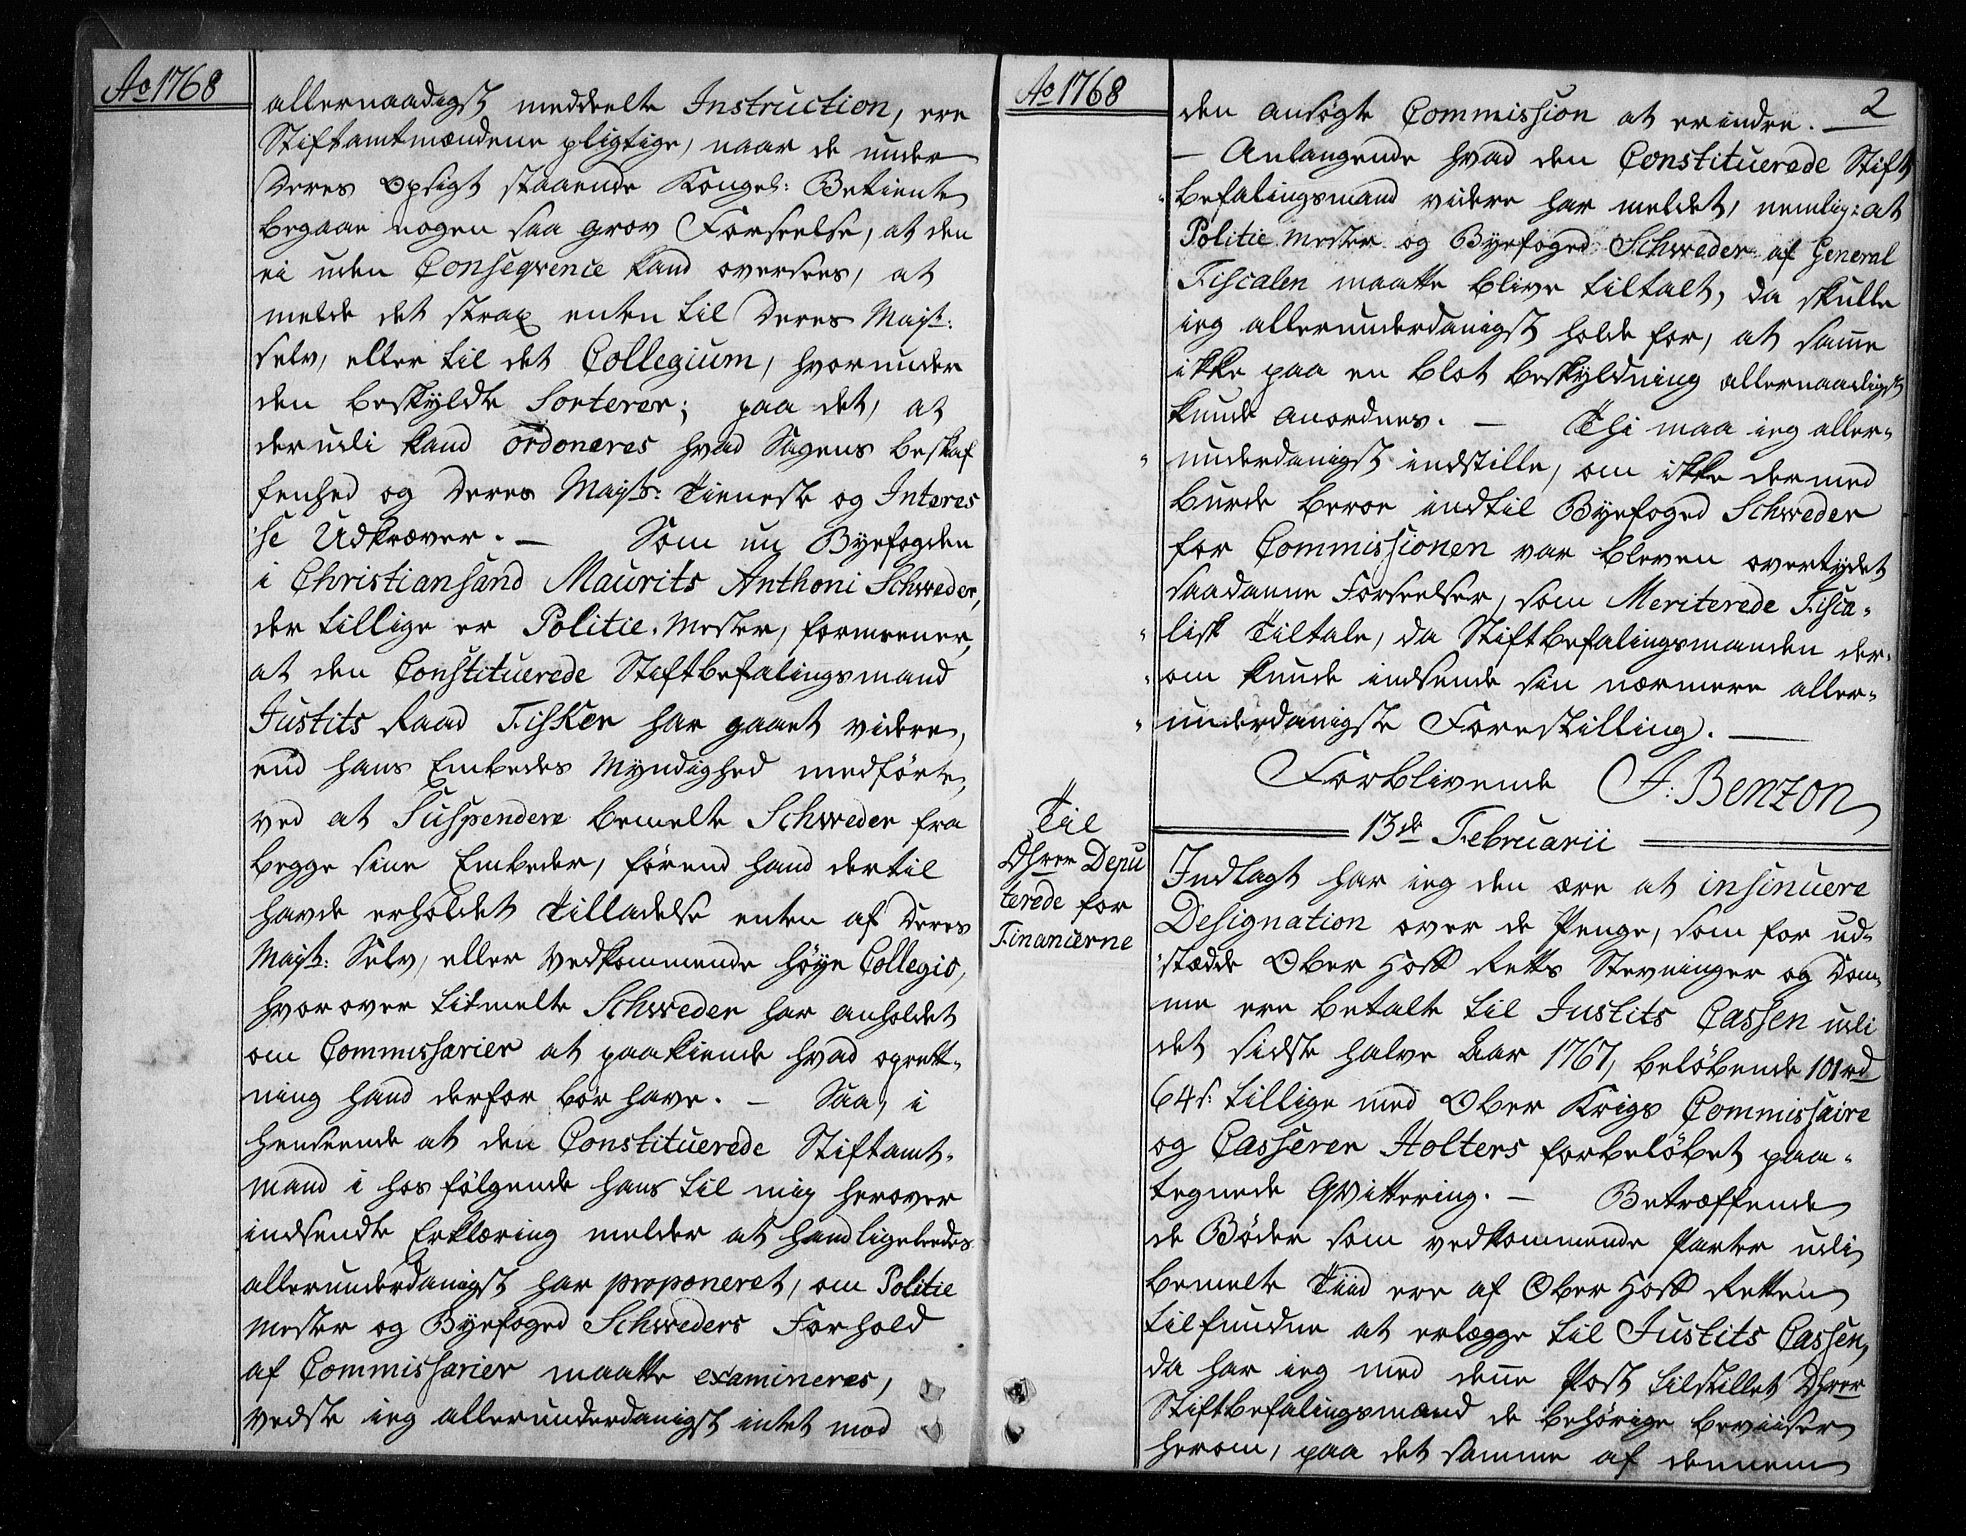 Ao 1768
allernaadigst meddeelte Instruction, ere
Stiftamtmændene pligtige, naar de under
Deres Opsigt staaende Kongel: Betiente
begaae nogen saa grov Forseelse, at den
ei uden Conseqvence kand oversees, at
melde det strax enten til Deres Mayst:
selv, eller til det Collegium, hvorunder
den beskyldte Sorterer; paa det, at
derudi kand ordoneres hvad Sagens beskaf
fenhed og Deres Mayts: Tieneste og Interes
se Udkræver. — Som nu Byefogden
i Christiansand Maurits Anthoni Schweder,
der tillige er Politie-Mester, formeener,
at den Constituerede Stiftbefalingsmand
Justits Raad Fisker har gaaet videre,
end hans Embedes Myndighed medførte,
ved at Suspendere bemelte Schweder fra
begge sine Embeder, førend hand dertil
havde erholdet Tilladelse enten af Deres
Mayst: Selv, eller Vedkommende høye Collegio,
hvorover titmelte Schweder har anholdet
om Commissarier at paakiende hvad oprett-
ning hand derfor bør have. — Saa, i
henseende at den Constituerede Stiftamt-
mand i hos følgende hans til mig herover
indsendte Erklæring melder at hand ligeleedes
allerunderdanigst har proponeret, om Politie
Mester og Byefoged Schweders Forhold
af Commissarier maatte examineres,
vedste ieg allerunderdanigst intet mod
Ao 1768
2
den ansøgte Commission at erindre. —
— Anlangende hvad den Constituerede Stift
befalingsmand videre har meldet, nemlig: at
Politie Mester og Byefoged Schweder af General
Fiscalen maatte blive tiltalt, da skulle
ieg allerunderdanigst holde for, at samme
ikke paa en blot beskyldning allernaadigst
kunde anordnes. — Thi maa ieg aller-
underdanigst indstille, om ikke dermed
burde beroe indtil Byefoged Schweder
for Commissionen var bleven overtydet
saadanne Forseelser, som Meriterede Fisca-
lisk Tiltale, da Stiftbefalingsmanden der-
om kunde indsende sin nærmere aller-
underdanigste Forestilling. —
Forblivende J: Benzon
13de Februarii
Til
DHrer Depu
terede for
Financerne
Indlagt har ieg den ære at insinuere
Designation over de Penge, som for ud-
stædde Ober Hoff Retts Stevninger og Dom-
me ere betalte til Justits Cassen udi
det sidste halve Aar 1767, beløbende 101 rd
64 s: tillige med Ober Krigs Commissaire
og Casserer Holters forbeløbet paa-
tegnede Qvittering. — Betræffende
de Bøder som vedkommende Parter udi
bemelte Tiid ere af Ober Hoff Retten
tilfundne at erlægge til Justits Cassen,
da har ieg med denne Post tilstillet DHrer
Stiftbefalingsmænd de behørige beviiser
herom, paa det samme af dennem